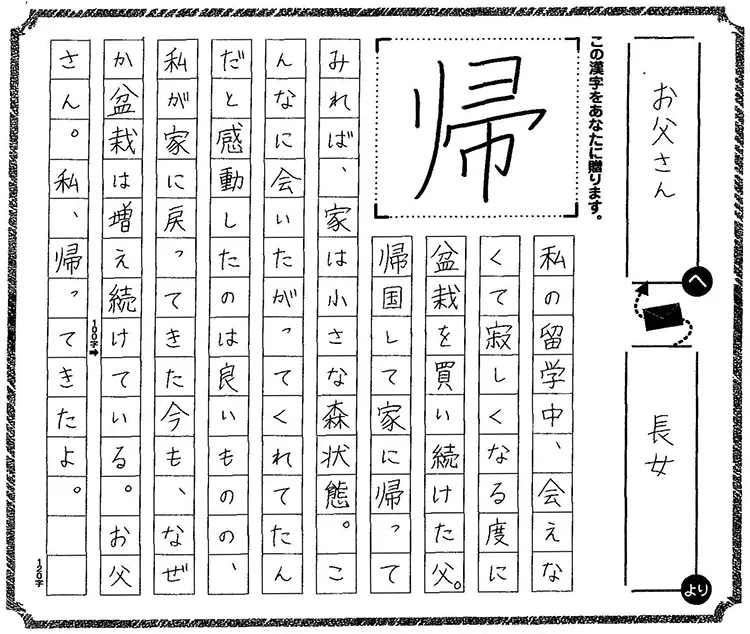 お父さん
へ
長女
より
この漢字をあなたに贈ります。
帰
私の留学中、会えな
くて寂しくなる度に
盆栽を買い続けた父。
帰国して家に帰って
みれば、家は小さな森状態。こ
んなに会いたがってくれてたん
だと感動したのは良いものの、
私が家に戻ってきた今も、なぜ
か盆栽は増え続けている。お父
さん。私、帰ってきたよ。
100字
120字